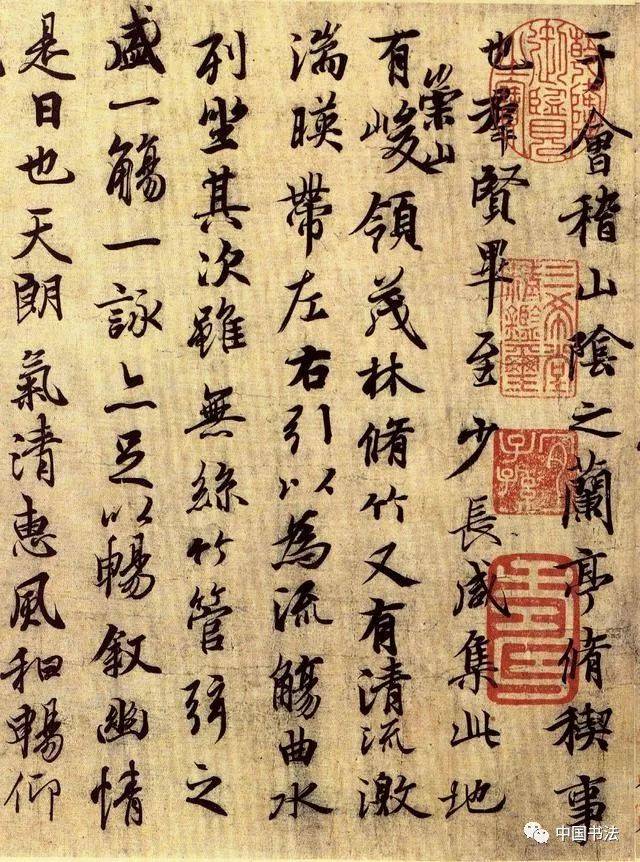 于會稽山陰之蘭亭脩稧事
也羣賢畢至少長咸集此地
有崇山峻領茂林脩竹又有清流激
湍暎帶左右引以為流觴曲水
列坐其次雖無絲竹管弦之
盛一觴一詠亦足以暢敘幽情
是日也天朗氣清惠風和暢仰
三希堂精鑑璽
宜子孫
中国书法